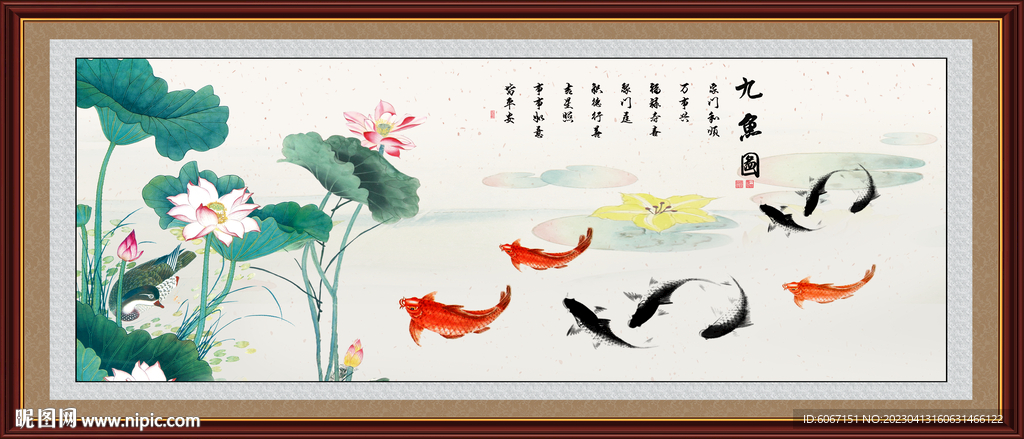 九鱼圖
家门和顺
万事兴
福禄寿喜
聚门庭
积德行善
吉星照
事事如意
皆平安
昵图网 www.nipic.com
ID:6067151 NO:20230413160631466122